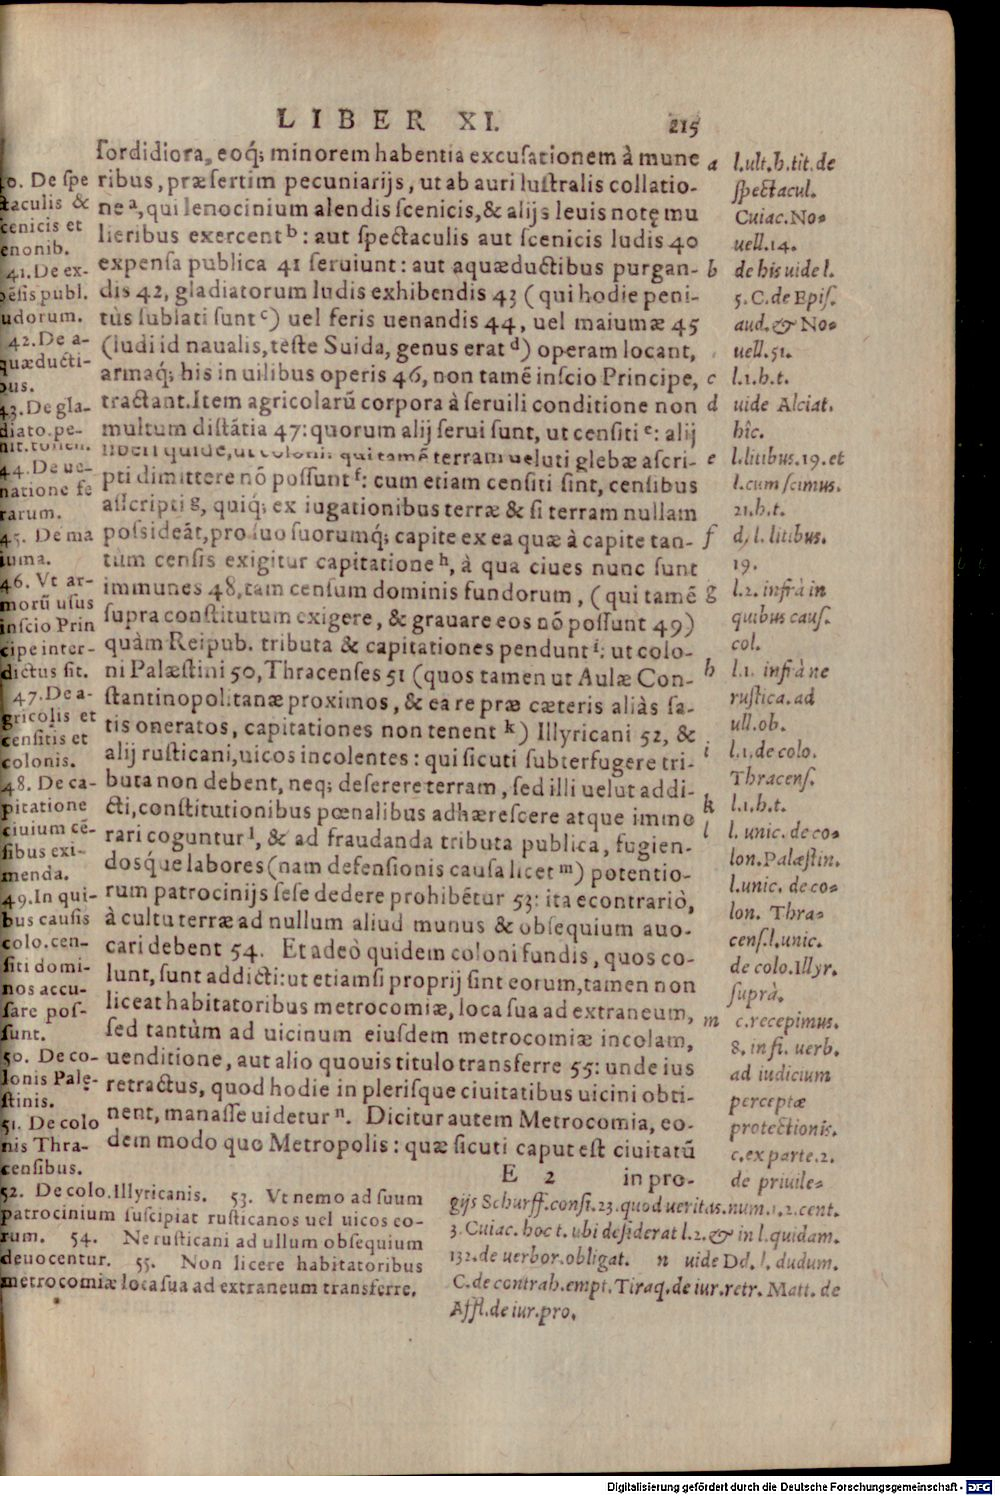 LIBER XI. 215
sordidiora, eoq́; minorem habentia excusationem à mune
ribus, præsertim pecuniarijs, ut ab auri lustralis collatio-
ne ᵃ, qui lenocinium alendis scenicis, & alijs leuis notę mu
lieribus exercent ᵇ: aut spectaculis aut scenicis ludis 40
expensa publica 41 seruiunt: aut aquæductibus purgan-
dis 42, gladiatorum ludis exhibendis 43 (qui hodie peni-
tùs sublati sunt ᶜ) uel feris uenandis 44, uel maiumæ 45
(ludi id naualis, teste Suida, genus erat ᵈ) operam locant,
armaq́; his in uilibus operis 46, non tamẽ inscio Principe,
tractant. Item agricolarũ corpora à seruili conditione non
multum distãtia 47: quorum alij serui sunt, ut censiti ᵉ: alij
liberi quidẽ, ut coloni: qui tamẽ terram ueluti glebæ ascri-
pti dimittere nõ possunt ᶠ: cum etiam censiti sint, censibus
asscripti ᵍ, quiq́; ex iugationibus terræ & si terram nullam
possideãt, pro suo suorumq́; capite ex ea quæ à capite tan-
tùm censis exigitur capitatione ʰ, à qua ciues nunc sunt
immunes 48, tam censum dominis fundorum, (qui tamẽ
supra constitutum exigere, & grauare eos nõ possunt 49)
quàm Reipub. tributa & capitationes pendunt ⁱ: ut colo-
ni Palæstini 50, Thracenses 51 (quos tamen ut Aulæ Con-
stantinopolitanæ proximos, & ea re præ cæteris aliàs sa-
tis oneratos, capitationes non tenent ᵏ) Illyricani 52, &
alij rusticani, uicos incolentes: qui sicuti subterfugere tri-
buta non debent, neq; deserere terram, sed illi uelut addi-
cti, constitutionibus pœnalibus adhærescere atque immo
rari coguntur ˡ, & ad fraudanda tributa publica, fugien-
dosq́ue labores (nam defensionis causa licet ᵐ) potentio-
rum patrocinijs sese dedere prohibẽtur 53: ita econtrariò,
à cultu terræ ad nullum aliud munus & obsequium auo-
cari debent 54. Et adeò quidem coloni fundis, quos co-
lunt, sunt addicti: ut etiamsi proprij sint eorum, tamen non
liceat habitatoribus metrocomiæ, loca sua ad extraneum,
sed tantùm ad uicinum eiusdem metrocomiæ incolam,
uenditione, aut alio quouis titulo transferre 55: unde ius
retractus, quod hodie in plerisque ciuitatibus uicini obti-
nent, manasse uidetur ⁿ. Dicitur autem Metrocomia, eo-
dem modo quo Metropolis: quæ sicuti caput est ciuitatũ
E 2 in pro-
40. De spe
ctaculis &
scenicis et
lenonib.
41. De ex-
pẽsis publ.
ludorum.
42. De a-
quæducti-
bus.
43. De gla-
diato. pe-
nit. tollen.
44. De ue-
natione fe
rarum.
45. De ma
iuma.
46. Vt ar-
morũ usus
inscio Prin
cipe inter-
dictus sit.
47. De a-
gricolis et
censitis et
colonis.
48. De ca-
pitatione
ciuium cẽ-
sibus exi-
menda.
49. In qui-
bus causis
colo. cen-
siti domi-
nos accu-
sare pos-
sunt.
50. De co-
lonis Palę-
stinis.
51. De colo
nis Thra-
censibus.
52. De colo. Illyricanis. 53. Vt nemo ad suum
patrocinium suscipiat rusticanos uel uicos eo-
rum. 54. Ne rusticani ad ullum obsequium
deuocentur. 55. Non licere habitatoribus
metrocomiæ loca sua ad extraneum transferre.
a l. ult. h. tit. de
spectacul.
Cuiac. No-
uell. 14.
b de his uide l.
5. C. de Epis.
aud. & No-
uell. 51.
c l. 1. h. t.
d uide Alciat.
hîc.
e l. litibus. 19. et
l. cum scimus.
21. h. t.
f d. l. litibus.
19.
g l. 2. infrà in
quibus caus.
col.
h l. 1. infrà ne
rustica. ad
ull. ob.
i l. 1. de colo.
Thracens.
k l. 1. h. t.
l l. unic. de co-
lon. Palæstin.
l. unic. de co-
lon. Thra-
cens. l. unic.
de colo. Illyr.
suprà.
m c. recepimus.
8. in fi. uerb.
ad iudicium
perceptæ
protectionis.
c. ex parte. 2.
de priuile-
gijs Schurff. consi. 23. quod ueritas. num. 1. 2. cent.
3. Cuiac. hoc t. ubi desiderat l. 2. & in l. quidam.
132. de uerbor. obligat. n uide Dd. l. dudum.
C. de contrah. empt. Tiraq. de iur. retr. Matt. de
Affl. de iur. pro.
Digitalisierung gefördert durch die Deutsche Forschungsgemeinschaft - DFG